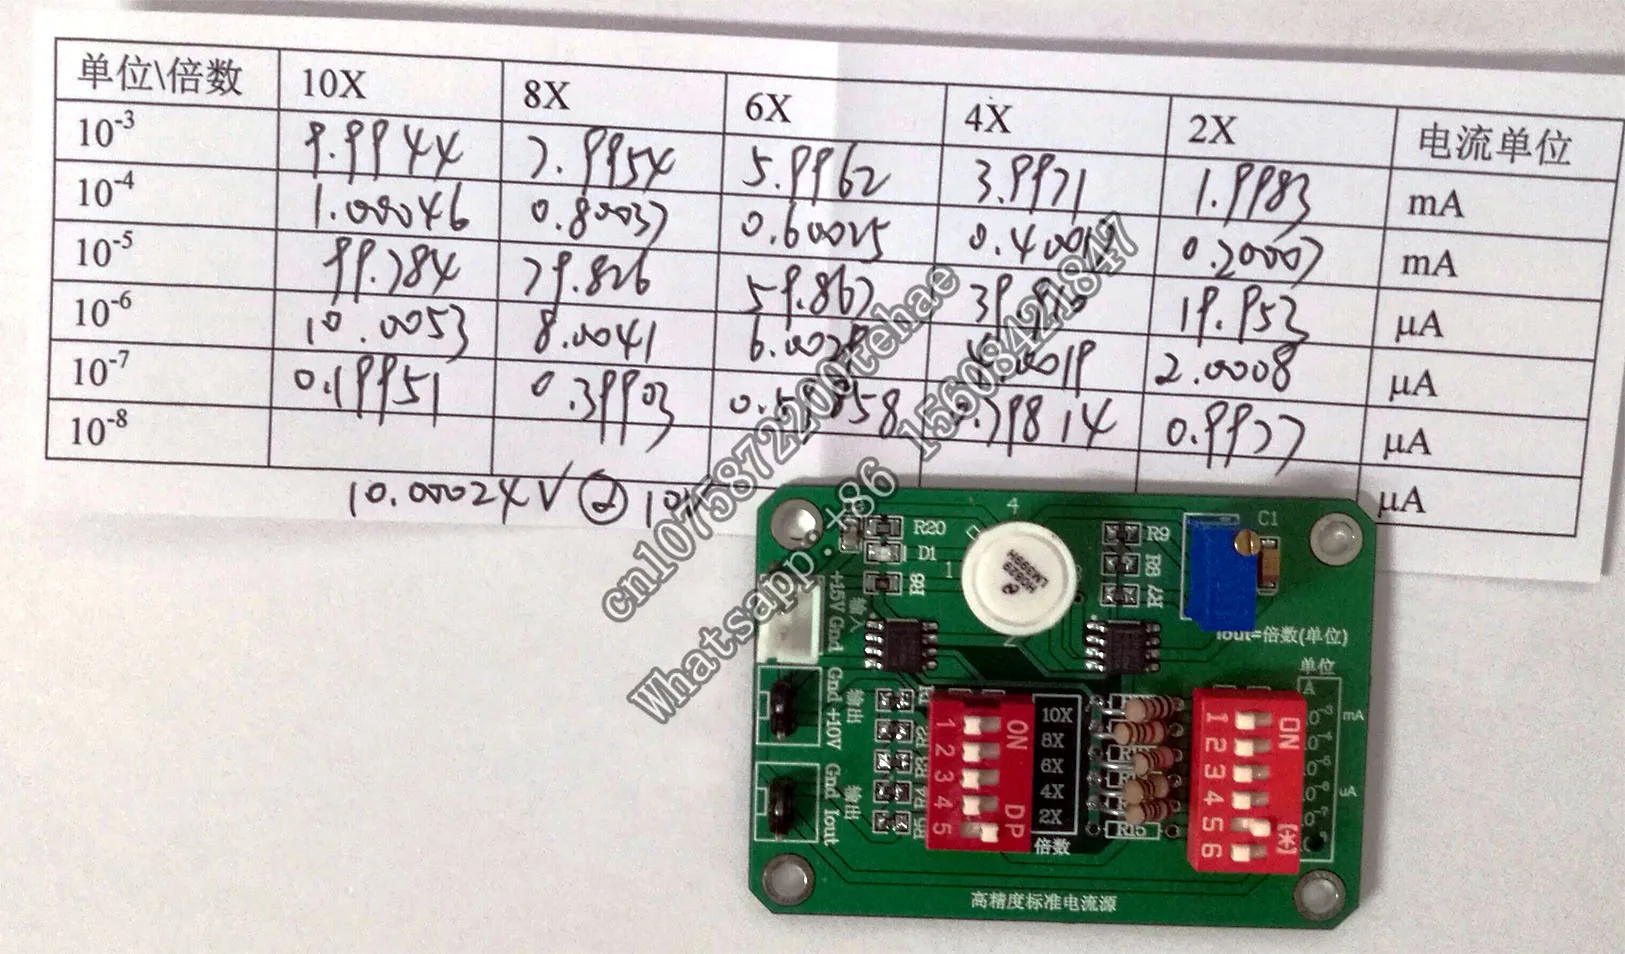 单位\倍数 10X 8X 6X 4X 2X 电流单位
10-3 9.9944 7.9954 5.9962 3.9971 1.9983 mA
10-4 1.00046 0.80037 0.60025 0.40019 0.20007 mA
10-5 99.784 79.826 59.867 19.953 μA
10-6 10.0053 8.0041 2.0008 μA
10-7 0.19951 0.39903 0.79814 0.9977 μA
10-8 μA
10.00024V
cn1075872200tehae
Whatsapp: +86 15608421847
4
R20
D1
1
R6
R9
R8
R7
C1
+15V Gnd
输入
Iout=倍数(单位)
单位
Gnd +10V
输出
Gnd Iout
输出
R2
R3
R4
R5
ON
DP
1
2
3
4
5
10X
8X
6X
4X
2X
倍数
R15
ON
(*)
1
2
3
4
5
6
mA
uA
LM399H
高精度标准电流源